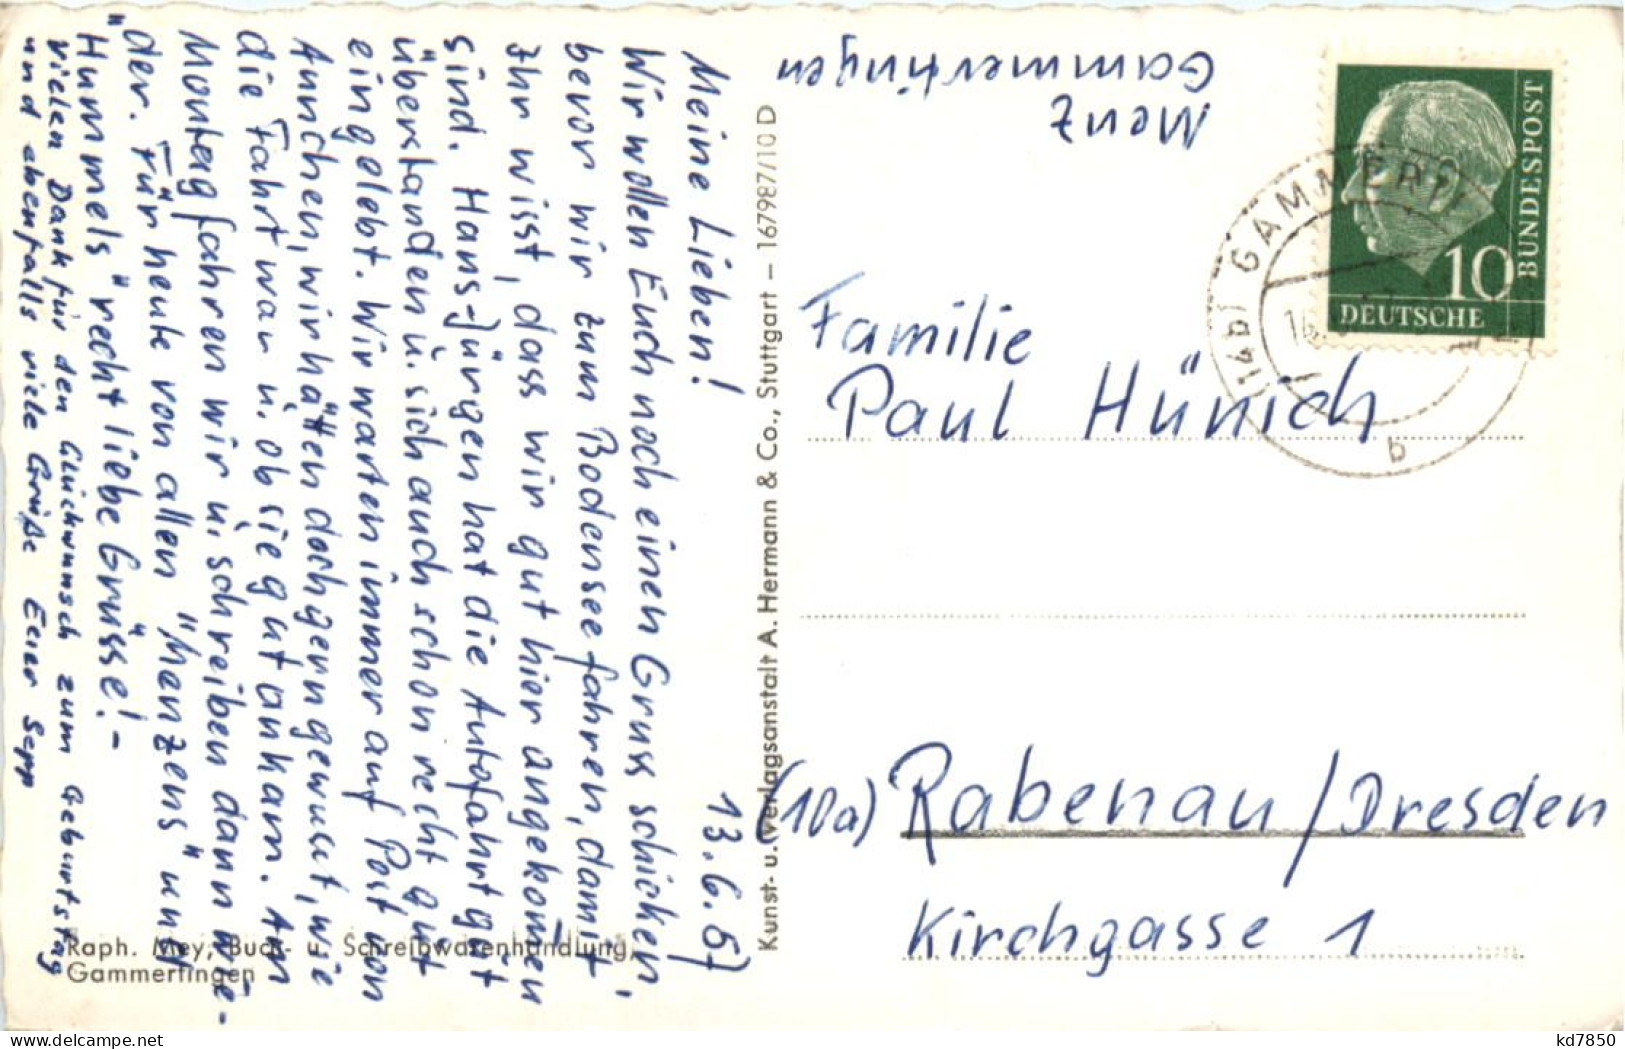 Meine Lieben!
13.6.57
Wir wollen Euch noch einen Gruss schicken,
bevor wir zum Bodensee fahren, damit
Ihr wisst, dass wir gut hier angekom̄en
sind. Hans-Jürgen hat die Autofahrt gut
überstanden u. sich auch schon recht gut
eingelebt. Wir warten immer auf Post von
Annchen, wir hätten doch gern gewusst, wie
die Fahrt war u. ob sie gut ankam. Am
Montag fahren wir u. schreiben dann wie-
der. Für heute von allen "Menzens" und
"Hummels" recht liebe Grüsse! –
vielen Dank für den Glückwunsch zum Geburtstag
und ebenfalls viele Grüße Euer Sepp
Raph. Mey, Buch- u. Schreibwarenhandlung,
Gammertingen
Kunst- u. Verlagsanstalt A. Hermann & Co., Stuttgart – 167987/10 D
Menz
Gammertingen
DEUTSCHE
BUNDESPOST
10
(14b) GAMMERTI
b
Familie
Paul Hünich
(10a) Rabenau/Dresden
Kirchgasse 1
kd7850